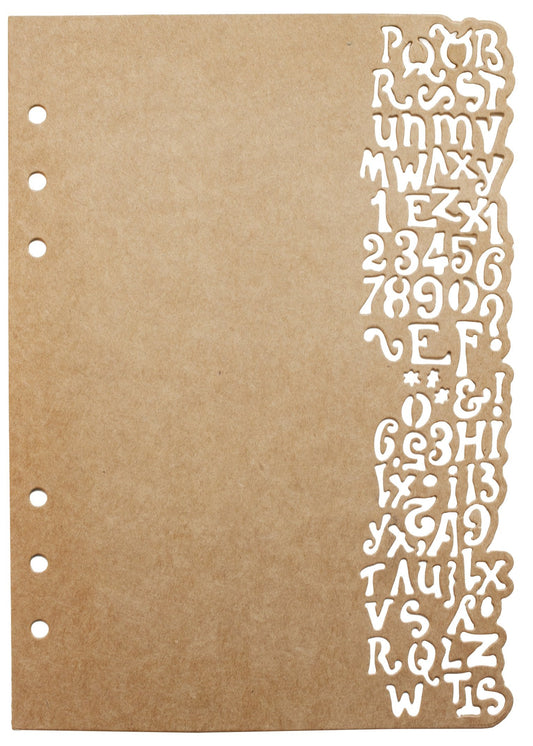 PQMB
RSST
unmv
MWΛXY
1EZX1
23456
7890?
~EF
***&!
0
6.53HI
lx÷¡13
yx,2A9
TΛU}lx
VSʎo
RQLZ
WTIS